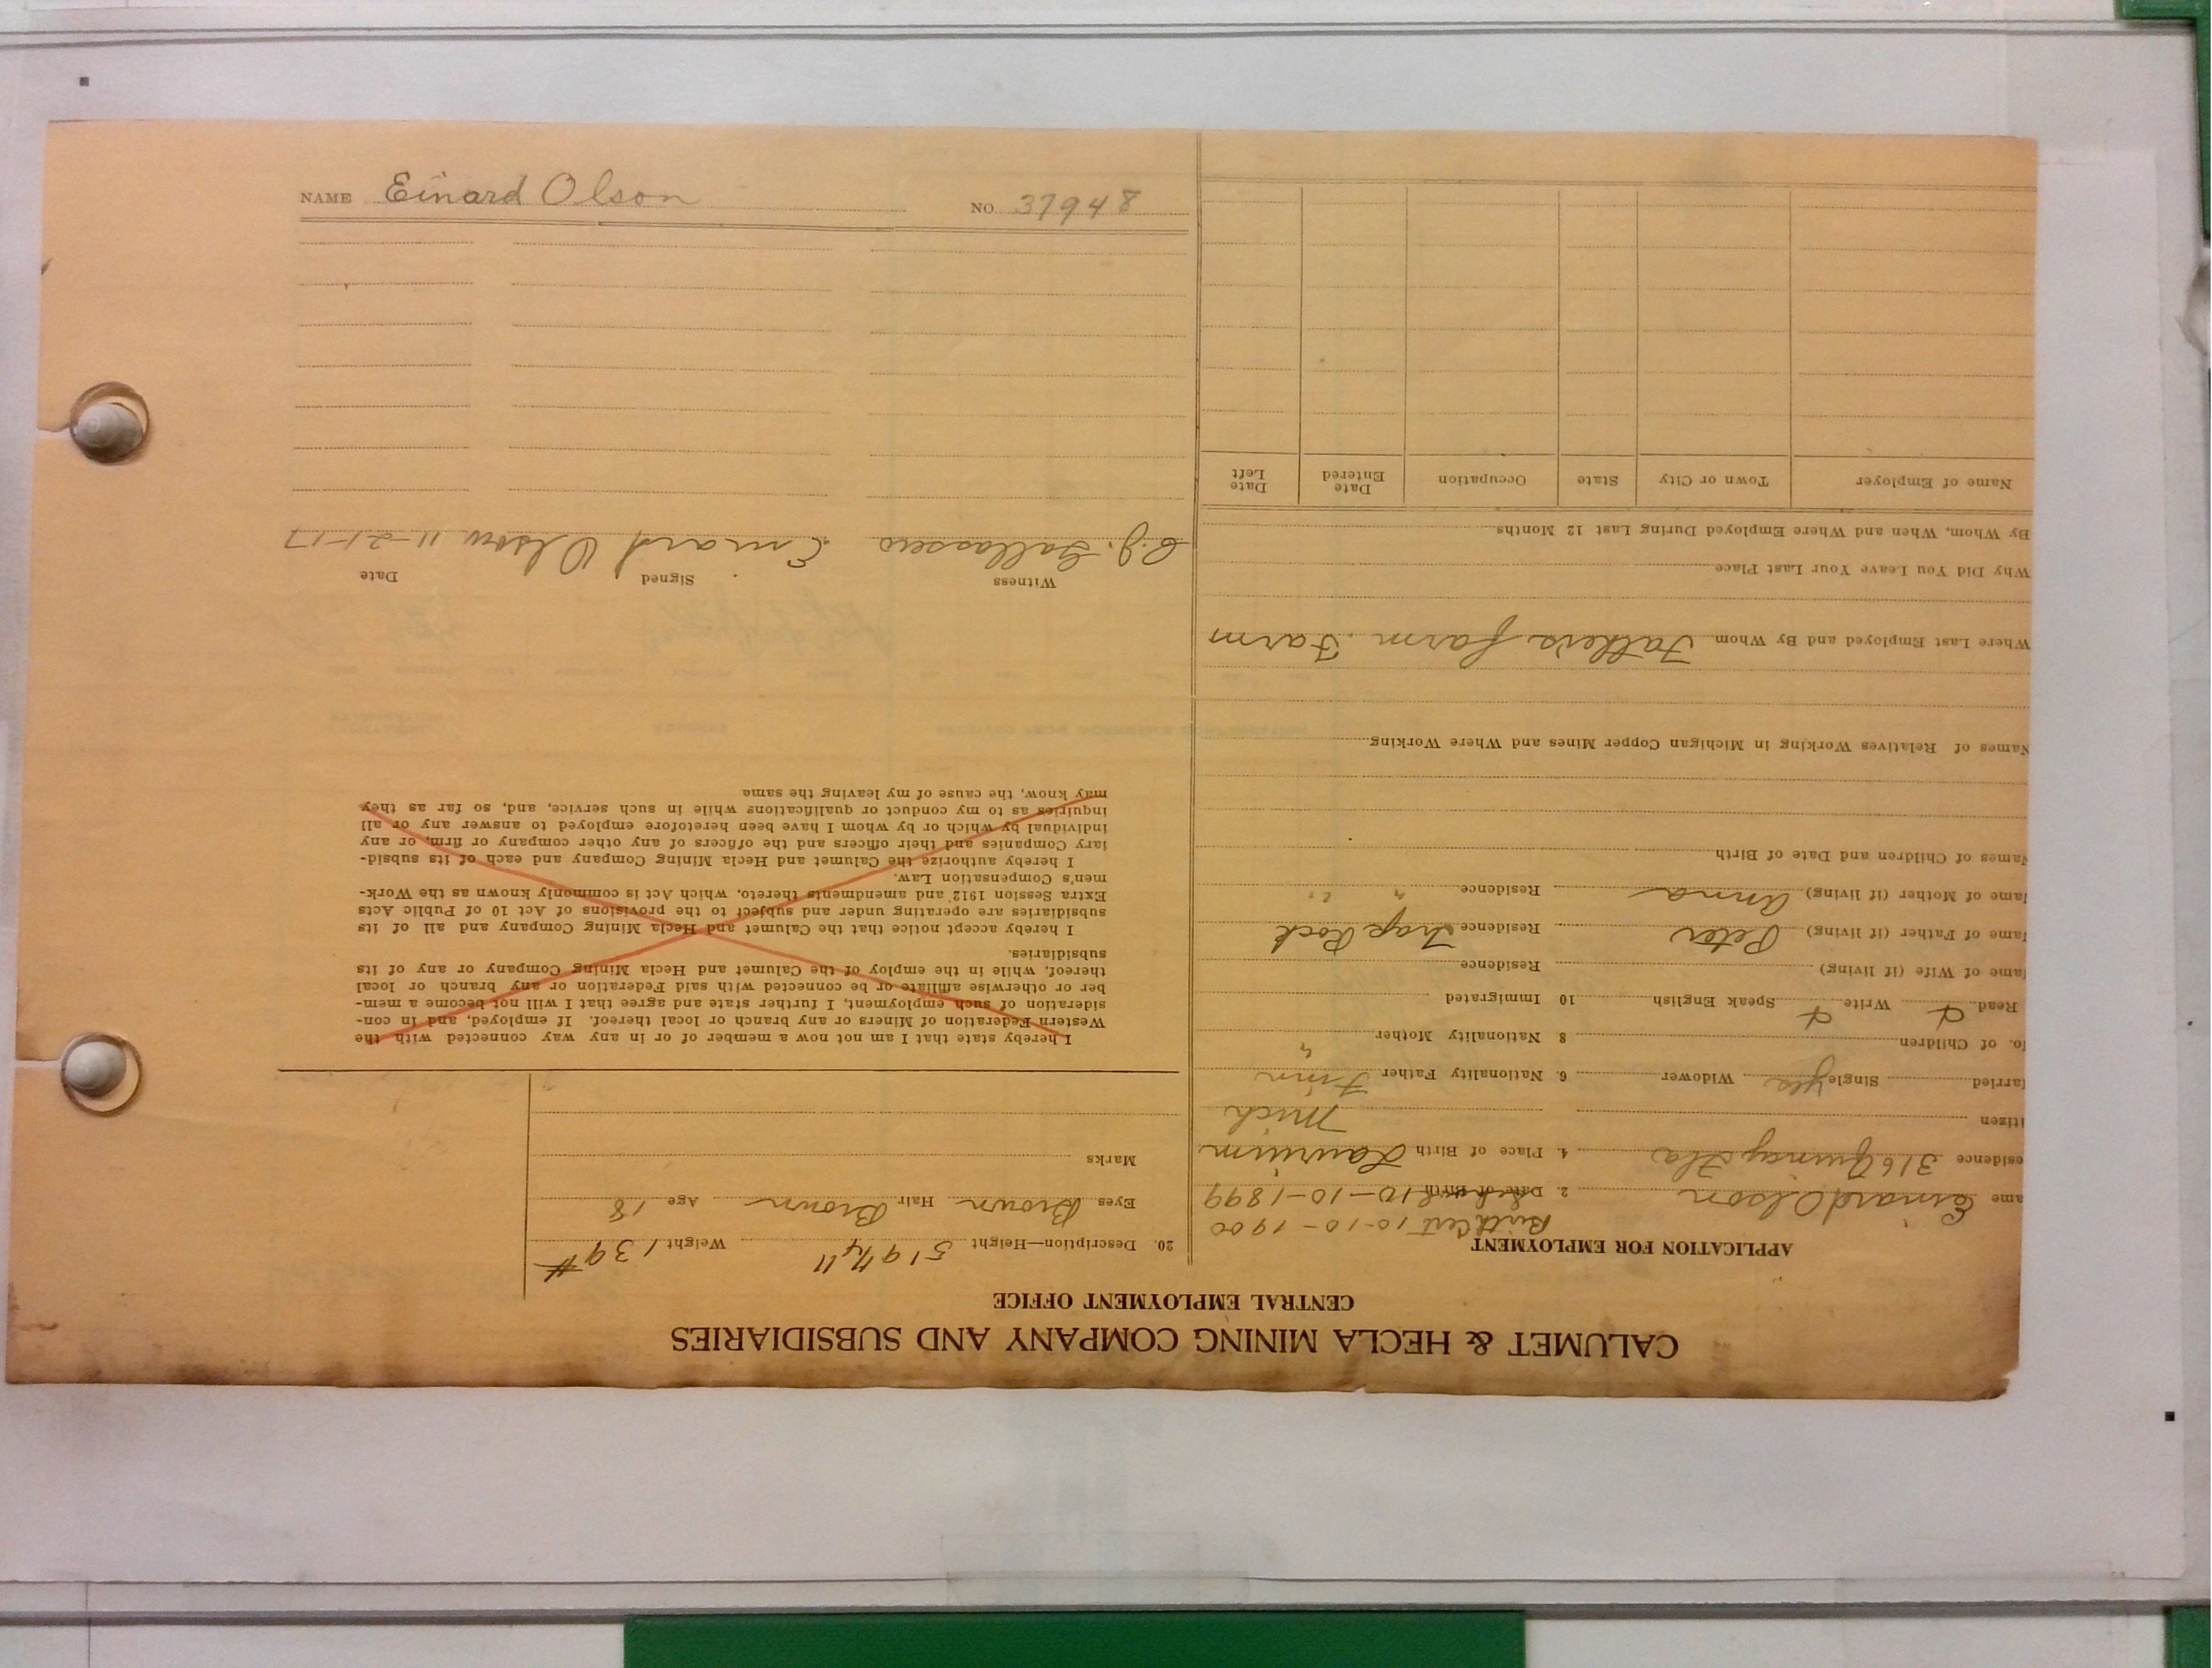 CALUMET & HECLA MINING COMPANY AND SUBSIDIARIES
CENTRAL EMPLOYMENT OFFICE
APPLICATION FOR EMPLOYMENT
Birth Cert 10-10-1900
ame Einard Olson 2. Date of Birth 10-10-1899
esidence 316 4. Place of Birth Laurium
itizen Mich
arried Single yes Widower 6. Nationality Father Finn
o. of Children 8 Nationality Mother "
Read Write Speak English 10 Immigrated
ame of Wife (if living) Residence
ame of Father (if living) Peter Residence Trap Rock
ame of Mother (if living) Anna Residence " "
Names of Children and Date of Birth
Names of Relatives Working in Michigan Copper Mines and Where Working
Where Last Employed and By Whom Father's farm. Farm
Why Did You Leave Your Last Place
By Whom, When and Where Employed During Last 12 Months
Name of Employer Town or City State Occupation Date Entered Date Left
20. Description—Height 5' 9 Weight 139 #
Eyes Brown Hair Brown Age 18
Marks
I hereby state that I am not now a member of or in any way connected with the
Western Federation of Miners or any branch or local thereof. If employed, and in con-
sideration of such employment, I further state and agree that I will not become a mem-
ber or otherwise affiliate or be connected with said Federation or any branch or local
thereof, while in the employ of the Calumet and Hecla Mining Company or any of its
subsidiaries.
I hereby accept notice that the Calumet and Hecla Mining Company and all of its
subsidiaries are operating under and subject to the provisions of Act 10 of Public Acts
Extra Session 1912 and amendments thereto, which Act is commonly known as the Work-
men's Compensation Law.
I hereby authorize the Calumet and Hecla Mining Company and each of its subsid-
iary Companies and their officers and the officers of any other company or firm, or any
individual by which or by whom I have been heretofore employed to answer any or all
inquiries as to my conduct or qualifications while in such service, and, so far as they
may know, the cause of my leaving the same
Witness Signed Date
Einard Olson 11-21-17
NAME Einard Olson NO. 37948